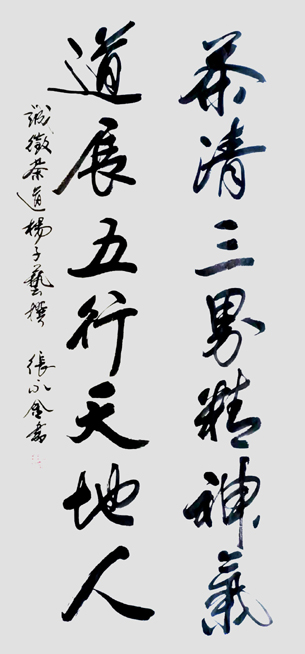 茶清三界精神氣
道展五行天地人
誠徵茶道楊子藝撰 張永金書